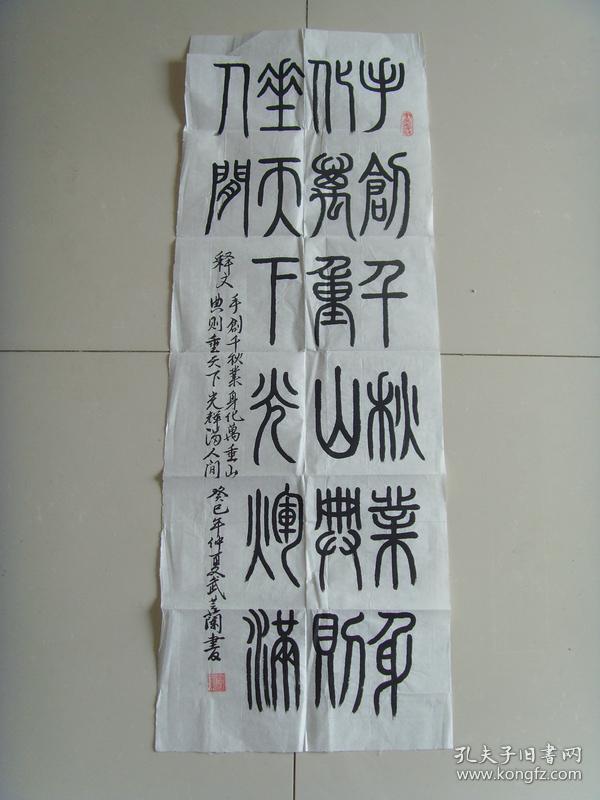 手創千秋業身
化萬重山典則
垂天下光輝滿
人間
释文
手創千秋業身化萬重山
典则垂天下光辉满人间 癸巳年仲夏武 蘭書
孔夫子旧书网
www.kongfz.com